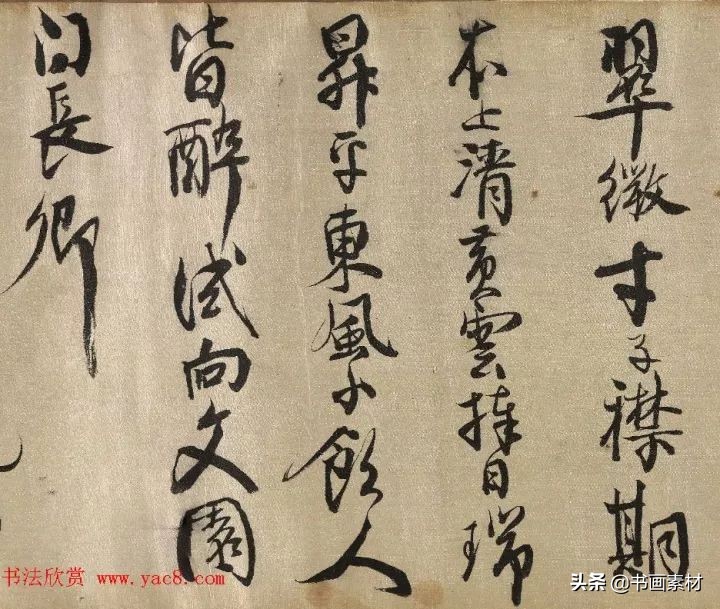 翠微才子襟期
本上清黄雲捧日瑞
昇平東風小飲人
皆醉試向文園
問長卿
书法欣赏 www.yac8.com
头条 @书画素材